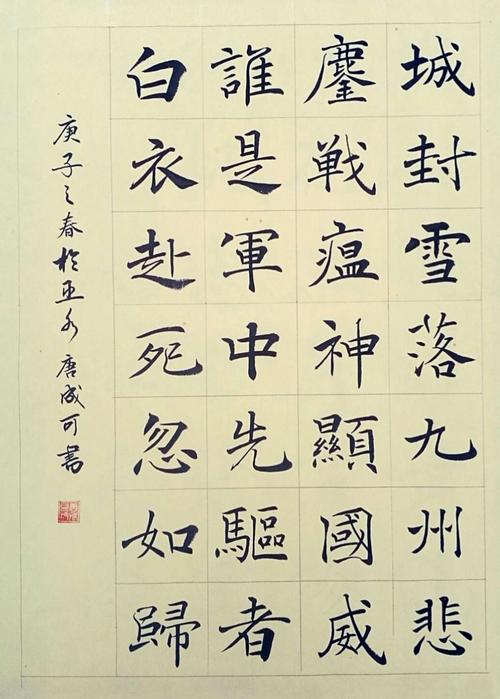 城封雪落九州悲
鏖戦瘟神顯國威
誰是軍中先驅者
白衣赴死忽如歸
庚子之春於亚水唐成可書